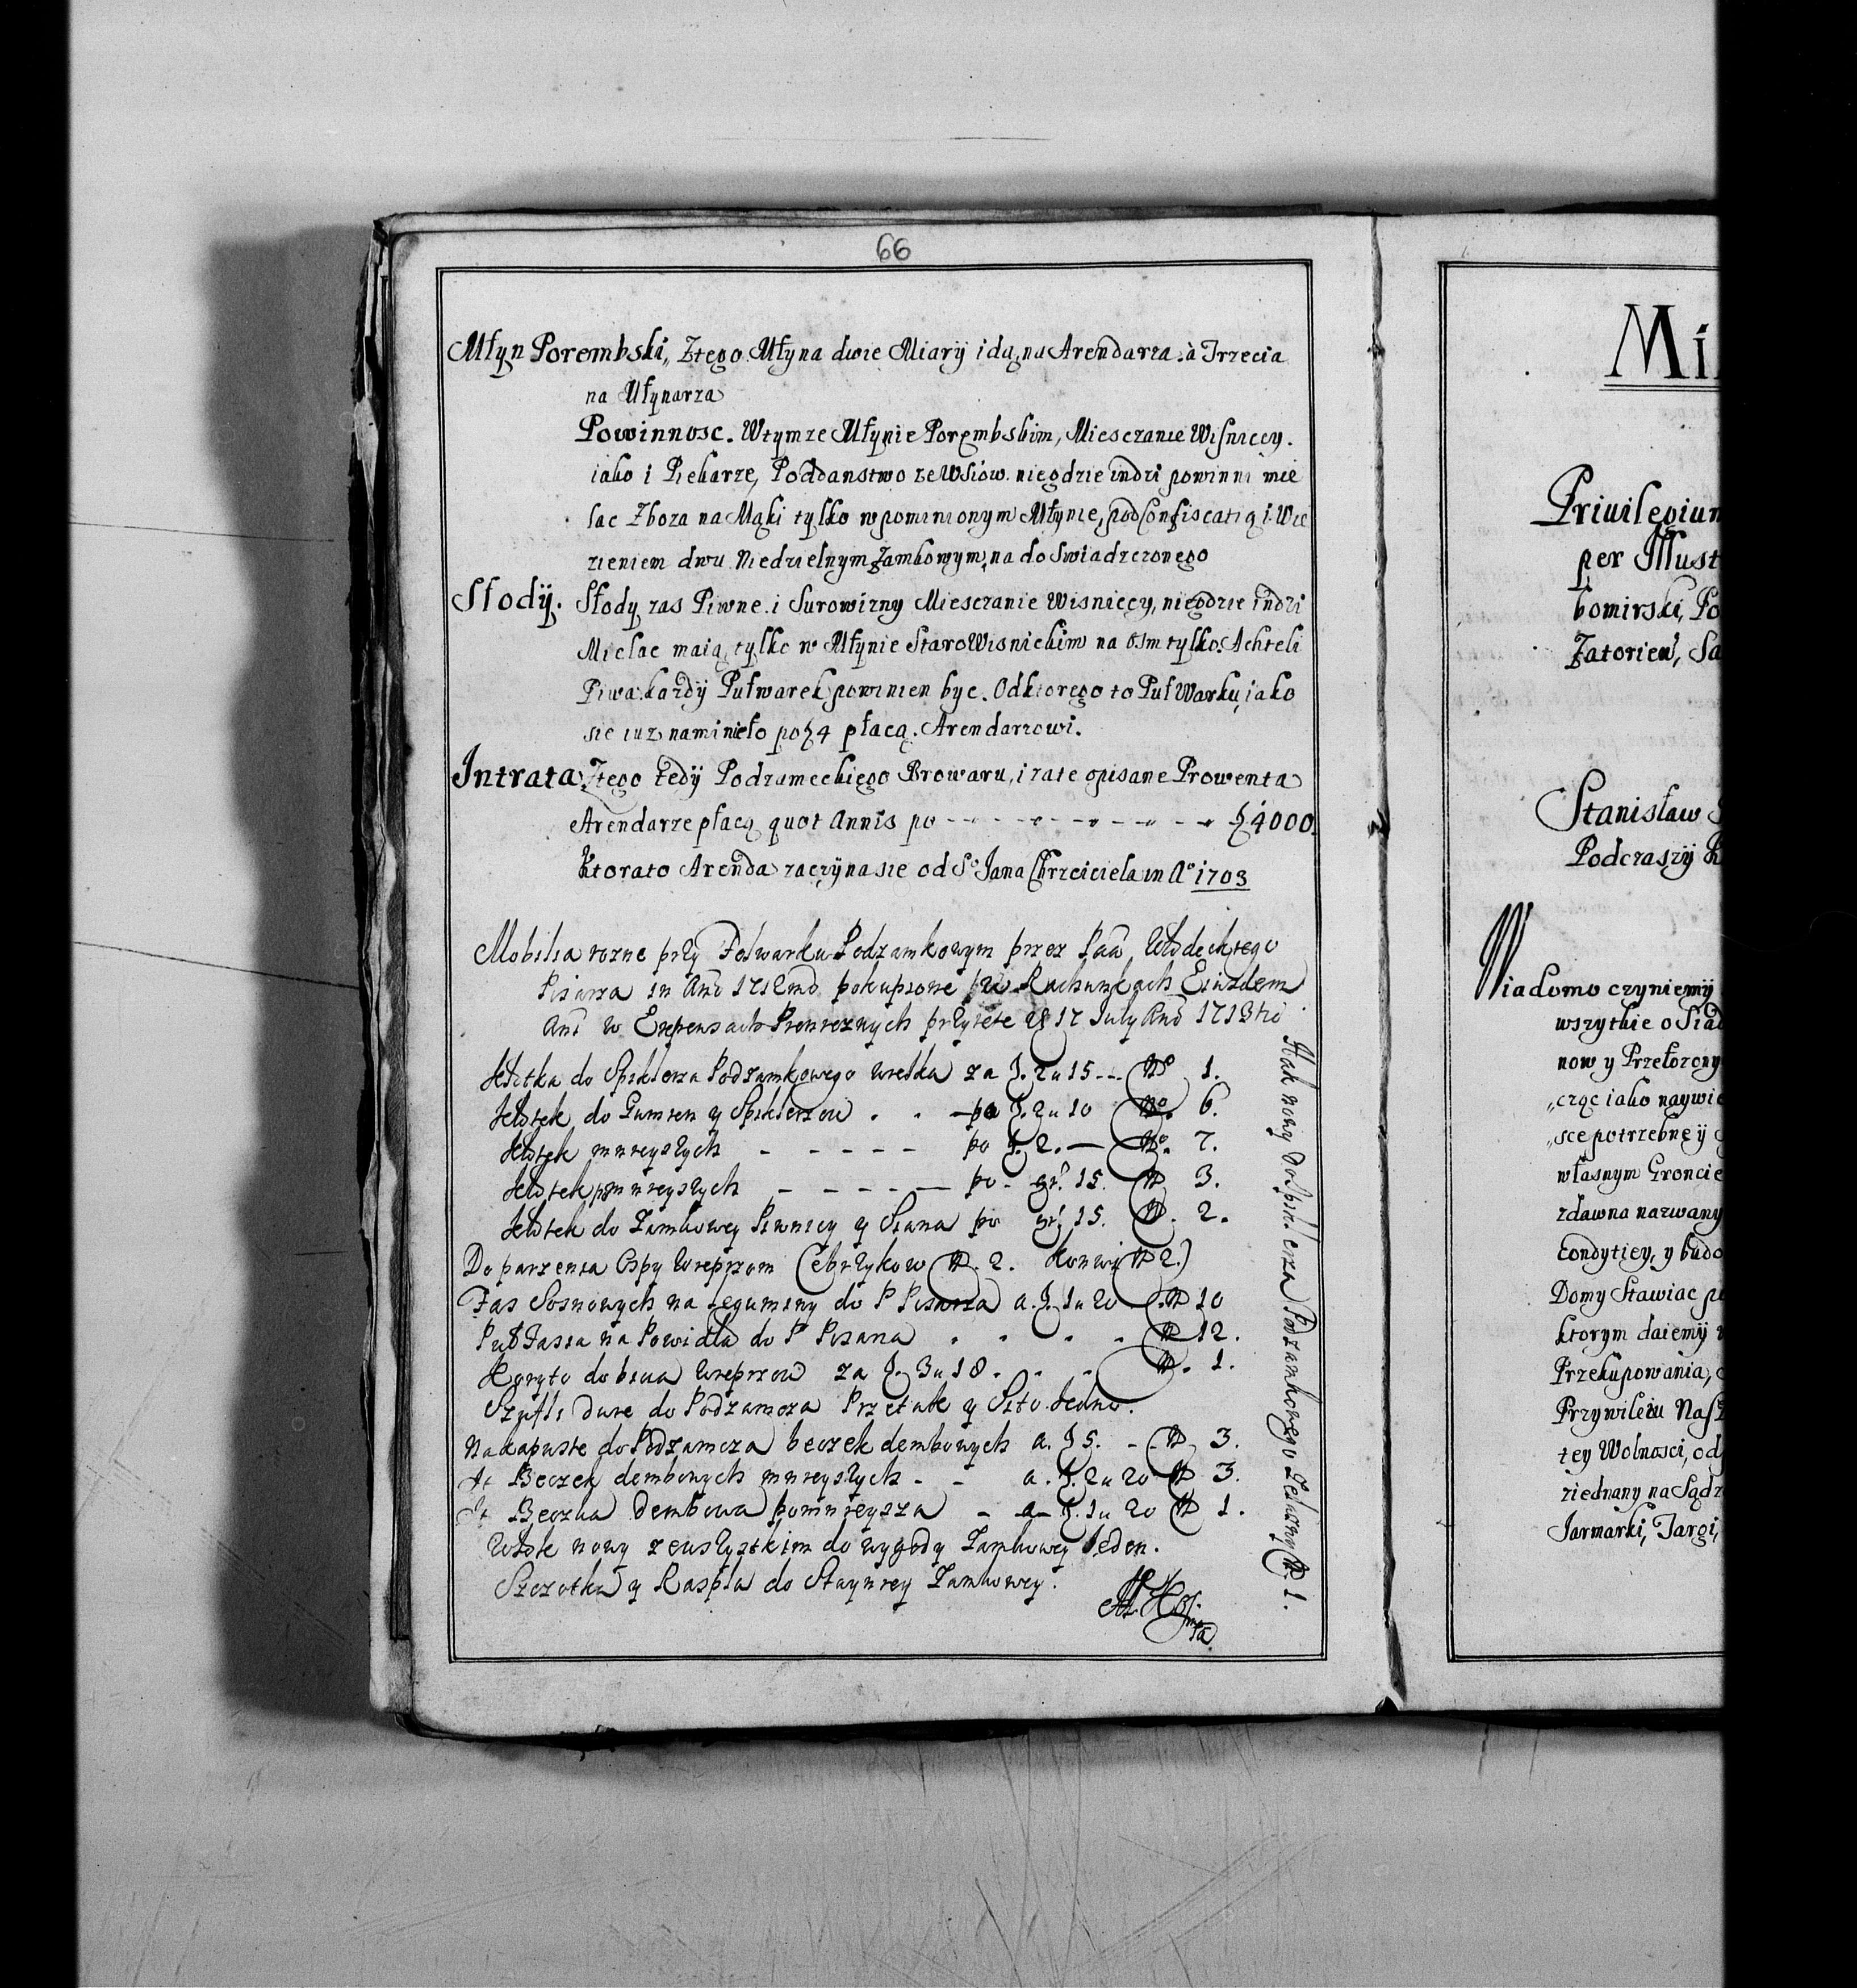 66
Młyn Porembski, Ztego Młyna dwie Miary idą na Arendarza. à Trzecia
na Młynarza
Powinnosc. Wtymze Młynie Porembskim, Miesczanie Wisniccy.
iako i Piekarze, Poddanstwo ze Wsiow. niegdzie indzi powinni mie
lac Zboza na Mąki tylko wpomnionym Młynie, pod Confiscatią i Wie
zieniem dwu Niedzielnym Zamkowym, na doswiadczonego
Słody. Słody zas Piwne i Surowizny Miesczanie Wisniccy, niegdzie indzi
Mielac maią, tylko w Młynie StaroWisnickim na osm tylko Achteli
Piwa. każdy Pułwarek powinien byc. Odktorego to PułWarku, iako
sie iuz naminieło po ƶ 4 płacą. Arendarzowi.
Intrata Ztego Tedy Podzameckiego Browaru, i zate opisane Prowenta
Arendarze płacą quot Annis po - - - - - - ƶ 4000.
Ktorato Arenda zaczyna sie od So Jana Chrzciciela in Ao 1703
Mobilia rozne przy Folwarku Podzamkowym przez Pana Włodeckiego
Pisarza in Ano 1712mo pokupione w Rachunkach Eiusdem
Ano w Expensach Pienieznych przyięte D 17 July Ano 1713tio
Kłotka do Spiklerza Podzamkowego wielka za f. 2 u 15 -- No 1.
Kłotek do Gumien y Spiklerzow . . po f. 2 u 10 No. 6.
Kłotek mnieyszych - - - - - po f. 2. — No. 7.
Kłotek pomnieyszych - - - - — po - gr. 15. No 3.
Kłotek do Zamkowey Piwnicy y Siana po gr 15. No. 2.
Do parzenia Ospy Wieprzom Cebrzykow No. 2. Konwi No 2.
Fas Sosnowych na Leguminy do P Pisarza a. f. 1 u 20 No 10
Puł Fassa na Powidła do P Pisarza . . . . No 12.
Koryto do bicia Wieprzow za f. 3 u 18 . . . No. 1.
Szufli dwie do Podzamcza Przetak y Sito Jedno.
Na kapuste do Podzamcza beczek dembowych a. f 5. - - No 3.
It Beczek dembowych mnieyszych - - a. f. 2 u 20 No 3.
It Beczka Dembowa pomnieysza - a - f. 1 u 20 No 1.
Wozek nowy zewszystkim do wygody Zamkowey Jeden.
Szczotka y Raspla do Stayniey Zamkowey.
Hak nowy do Spiklerza Podzamkowego Zelazny No 1.
Mi
Priuilegium
per Illust
bomirski, Po
Zatorien, Sa
Stanisław
Podczaszÿ K
Wiadomo czyniemÿ
wszytkie o Siad
now y Przełozony
„cząc iako naywię
„sce potrzebnę ÿ
własnym Groncie
zdawna nazwany
Condytiey, y budo
Domy Stawiac po
ktorym daiemÿ
Przekupowania,
Przywileiu Nasz
tey Wolnosci, od
ziednany na Sądz
Jarmarki, Targi,